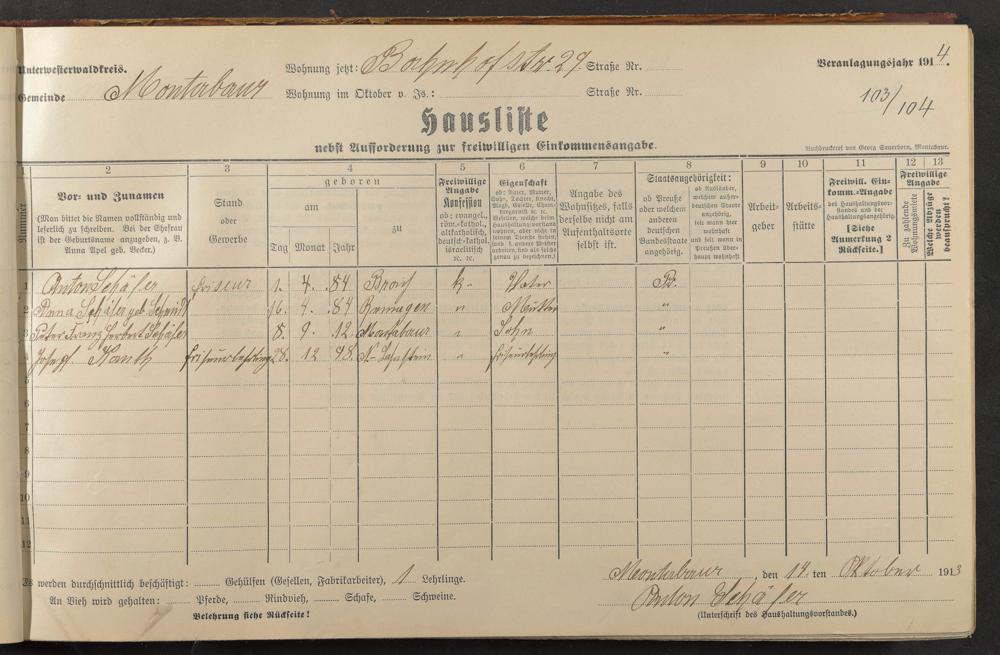 Unterwesterwaldkreis. Wohnung jetzt: Bahnhofstr. 29 Straße Nr. Veranlagungsjahr 1914.
Gemeinde Montabaur Wohnung im Oktober v. Js.: Straße Nr. 103/104
Hausliste
nebst Aufforderung zur freiwilligen Einkommensangabe.
Buchdruckerei von Georg Sauerborn, Montabaur.
1 2 3 4 5 6 7 8 9 10 11 12 13
Nummer
Vor- und Zunamen
(Man bittet die Namen vollständig und
leserlich zu schreiben. Bei der Ehefrau
ist der Geburtsname anzugeben, z. B.
Anna Apel geb. Becker.)
Stand
oder
Gewerbe
geboren
am
Tag Monat Jahr
zu
Freiwillige
Angabe
Konfession
ob: evangel.,
röm.-kathol.,
altkatholisch,
deutsch-kathol.
israelitisch
2c. 2c.
Eigenschaft
Angabe des
Wohnsitzes, falls
derselbe nicht am
Aufenthaltsorte
selbst ist.
Staatsangehörigkeit:
ob Preuße
oder welchem
anderen
deutschen
Bundesstaate
angehörig.
ob Ausländer,
welchem außer-
deutschen Staate
angehörig,
seit wann hier
wohnhaft
und seit wann in
Preußen über-
haupt wohnhaft
Arbeit-
geber
Arbeits-
stätte
Freiwill. Ein-
komm.-Angabe
des Haushaltungsvor-
standes und der
Haushaltungsangehörig.
[Siehe
Anmerkung 2
Rückseite.]
Freiwillige
Angabe
Zu zahlende
Wohnungsmiete
Welche Abzüge
werden
beansprucht?
1 Anton Schäfer Friseur 1. 4. 84 k. Vater Pr.
2 Anna Schäfer geb. Schmidt 16. 4. 84 Remagen " Mutter "
3 Peter Franz Herbert Schäfer 8. 9. 12 Montabaur " Sohn "
4 Josef Friseurlehrling 28. 12 98. N.-Lahnstein " Friseurlehrling "
5
6
7
8
9
10
11
12
Es werden durchschnittlich beschäftigt: Gehülfen (Gesellen, Fabrikarbeiter), 1 Lehrlinge.
Montabaur, den 14. ten Oktober 1913
An Vieh wird gehalten: Pferde, Rindvieh, Schafe, Schweine.
Anton Schäfer
Belehrung siehe Rückseite!
(Unterschrift des Haushaltungsvorstandes.)